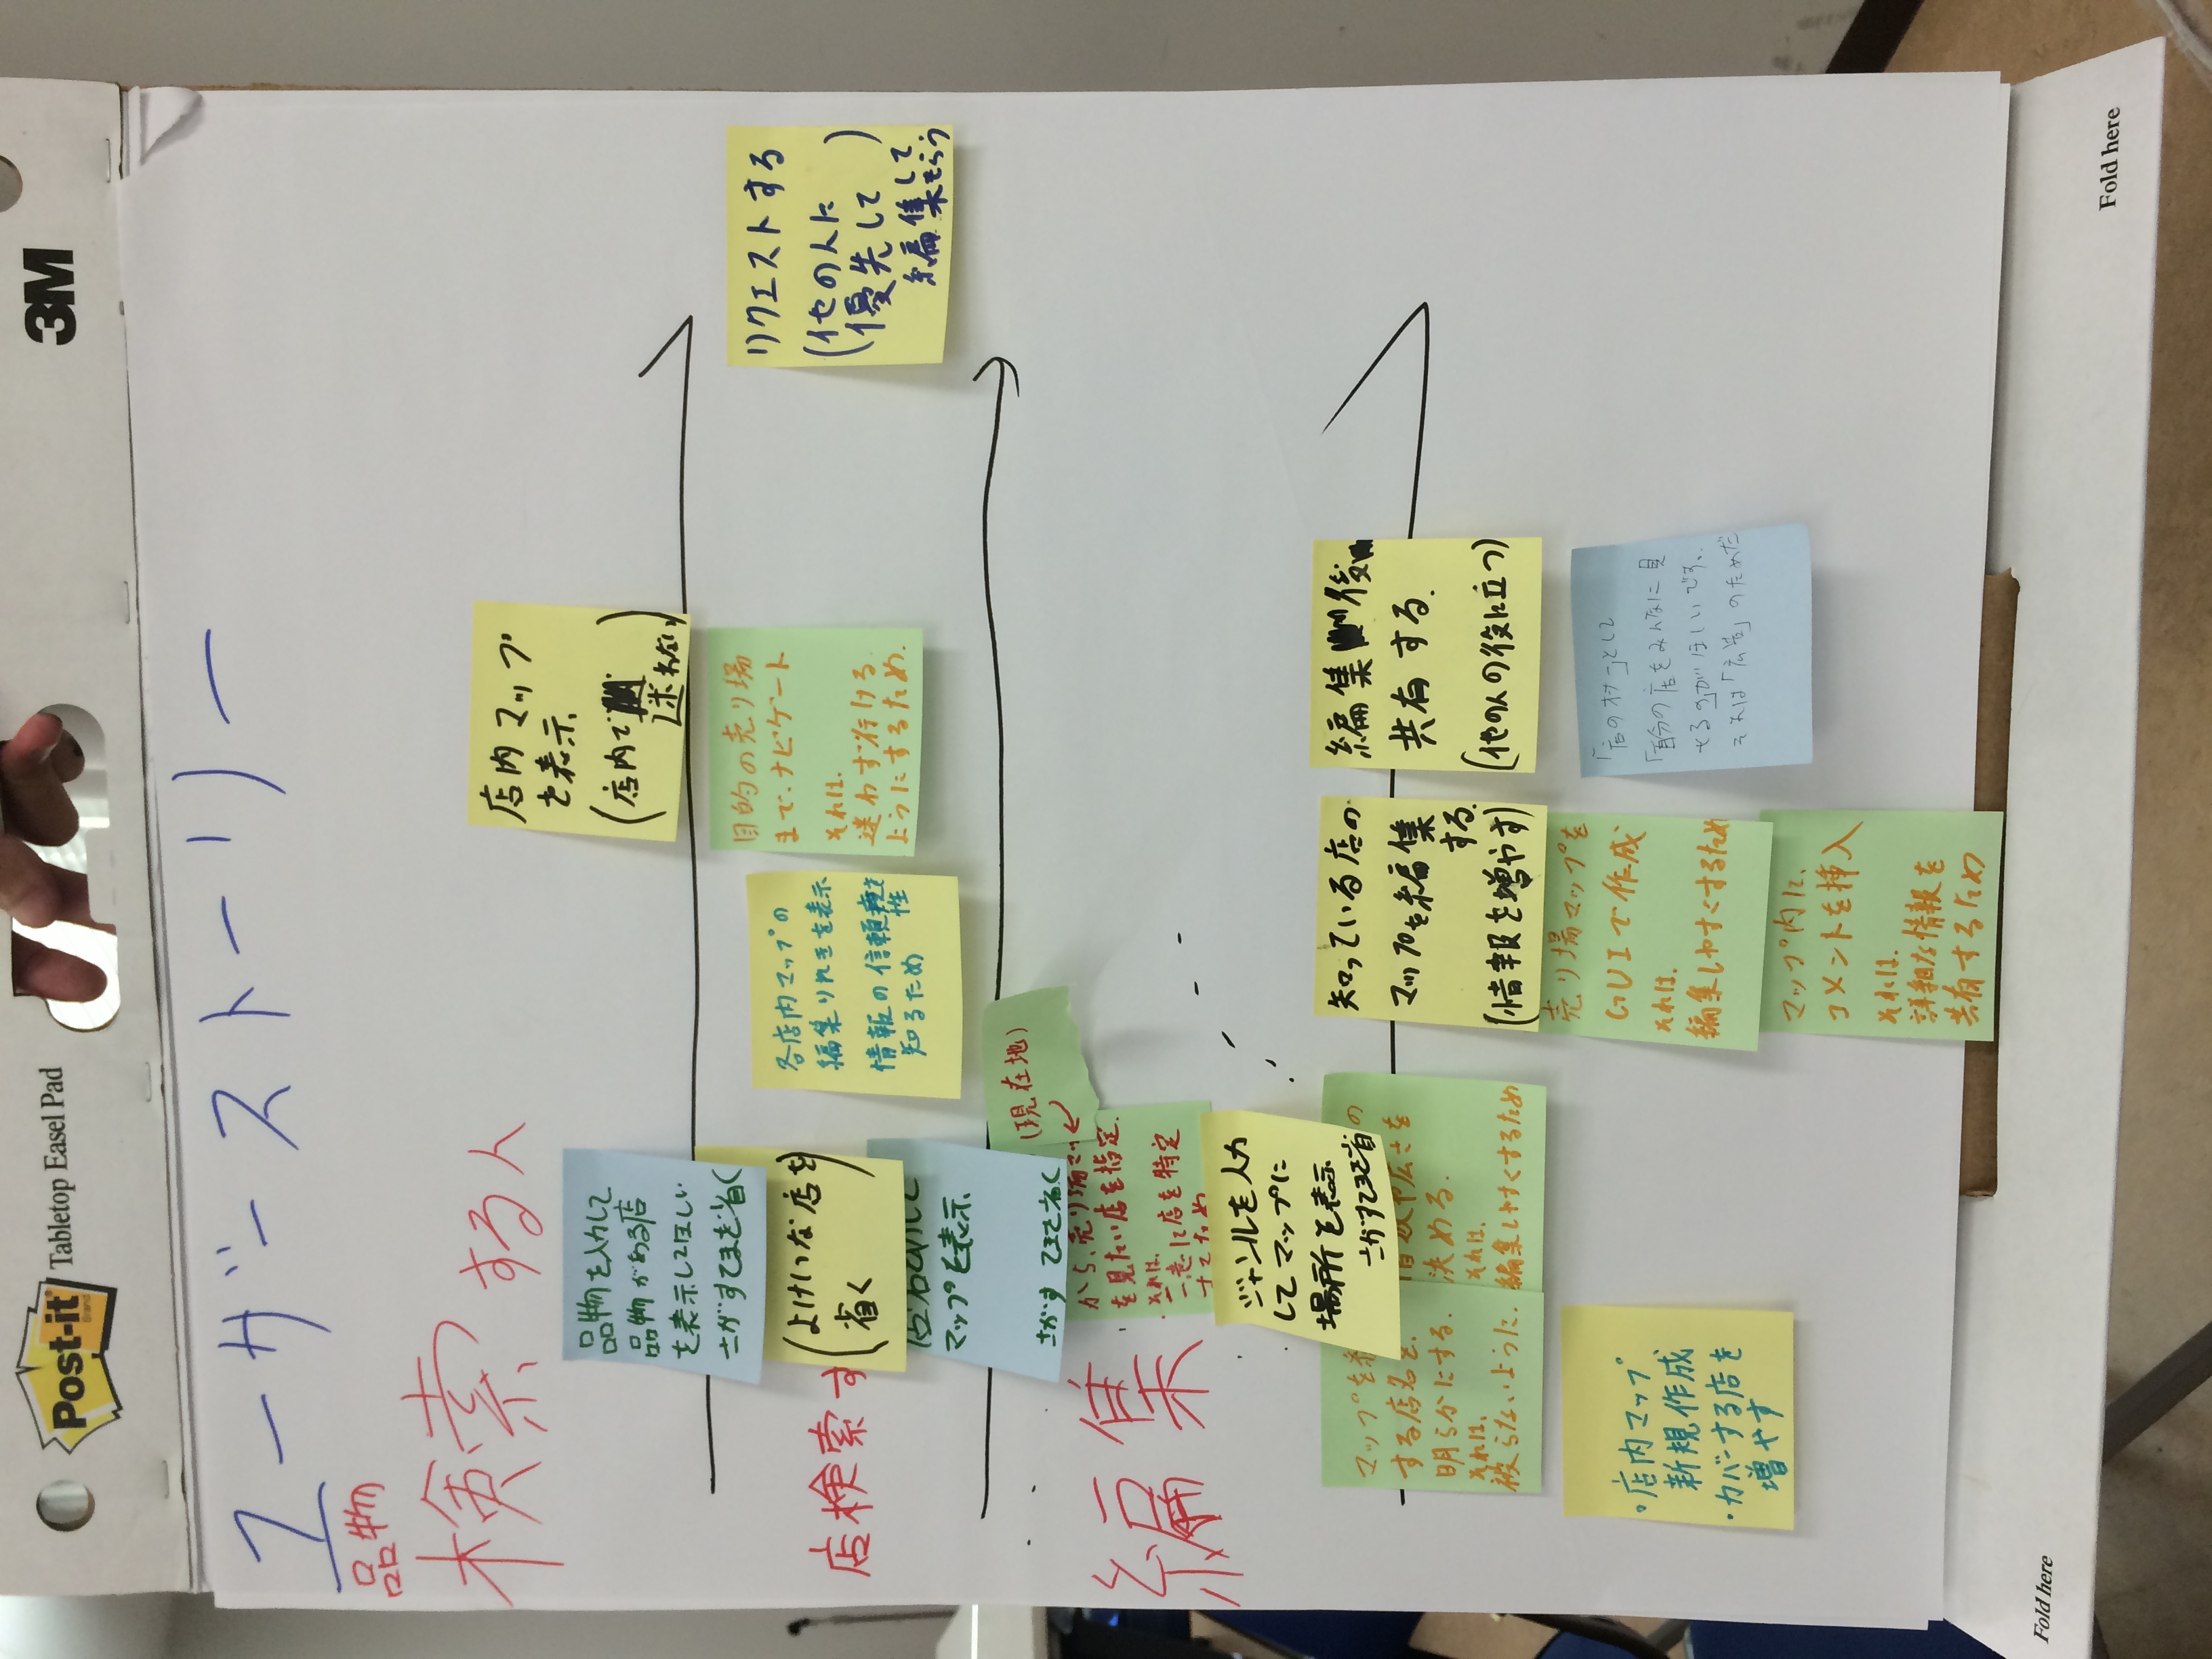 Post-it
Brand
Tabletop Easel Pad
3M
ユーザーストーリー
品物
検索する人
店内マップ
を表示
(店内で
迷わない)
品物を入力して
品物がある店
を表示してほしい
さがすてまを省く
店検索す
(よけいな店を
省く)
各店内マップの
編集りれきを表示
情報の信頼性を
知るため
目的の売り場
まで、ナビゲート
それは、
迷わず行ける
ようにするため.
リクエストする
(他の人に
優先して
編集して
もらう)
マップを表示
さがすてまを省く
(現在地)
から、売り場マッ
を見たい店を指定.
それは、
一意に店を特定
するため
編集
ジャンルを入力
してマップに
場所を表示
さがすてまを省
マップを
する店名を、
明らかにする.
それは、
被らないように.
の
広さを
決める.
それは、
編集しやすくするため
知っている店の
マップを編集
する.
(情報を増やす)
編集後
共有する.
(他の人の役に立つ)
・店内マップ
新規作成
・カバーする店を
増やす
売り場マップを
GUIで作成
それは、
編集しやすくするため
「店の村一」として
「自分の店をみんなに見
せるの」がほしいです、
それは「広告」のためだ
マップ内に、
コメントを挿入
それは、
詳細な情報を
共有するため
Fold here
Fold here